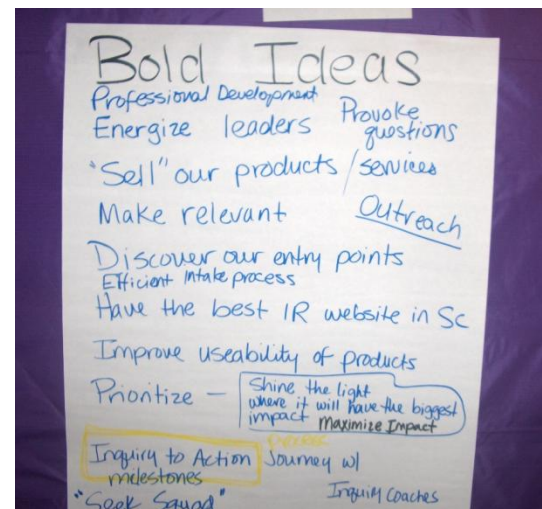 Bold Ideas
Professional Development
Energize leaders
Provoke
questions
"Sell" our products / services
Make relevant
Outreach
Discover our entry points
Efficient Intake process
Have the best IR website in SC
Improve useability of products
Prioritize – Shine the light
where it will have the biggest
impact Maximize Impact
Inquiry to Action Journey w/
milestones
Inquiry Coaches
"Seek Squad"